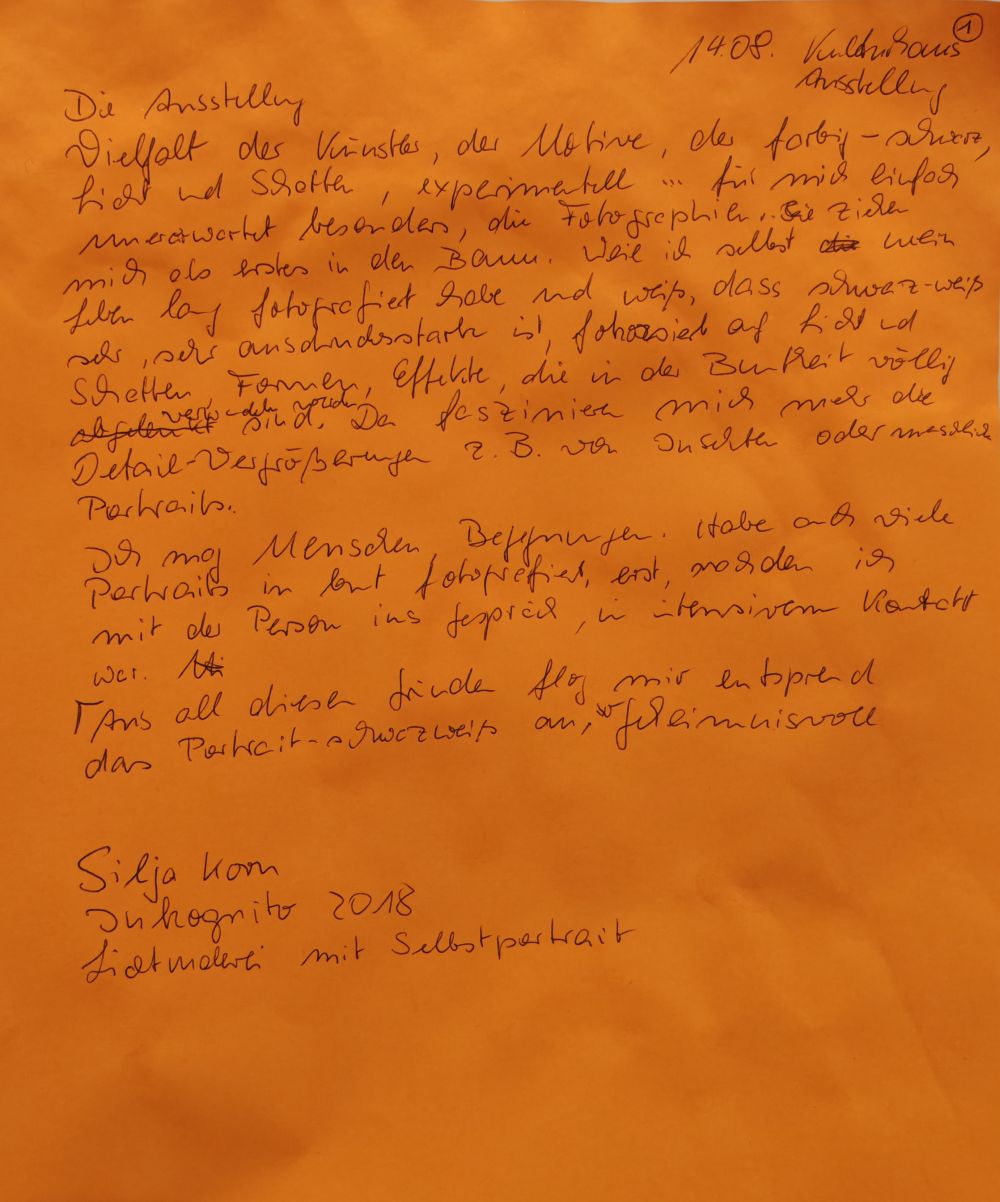 1
14.08. Kulturhaus
Ausstellung
Die Ausstellung
Vielfalt der Künstler, der Motive, der farbig-schwarz,
Licht und Schatten, experimentell ... für mich einfach
unerwartet besonders, die Fotographien. Sie ziehen
mich als erstes in den Bann. Weil ich selbst die mein
Leben lang fotografiert habe und weiß, dass schwarz-weiß
sehr, sehr ausdrucksstark ist, fokussiert auf Licht und
Schatten, Formen, Effekte, die in der Buntheit völlig
abgelenkt verschwinden würden sind. Da faszinieren mich mehr die
Detail-Vergrößerungen z.B. von Insekten oder menschlich
Portraits.
Ich mag Menschen, Begegnungen. Habe auch viele
Portraits in bunt fotografiert, erst, nachdem ich
mit der Person ins Gespräch, in intensivem Kontakt
war.
Aus all diesen Gründen flog mir entsprend
das Portrait-schwarzweiß an, so geheimnisvoll
Silja Korn
Inkognito 2018
Lichtmalerei mit Selbstportrait